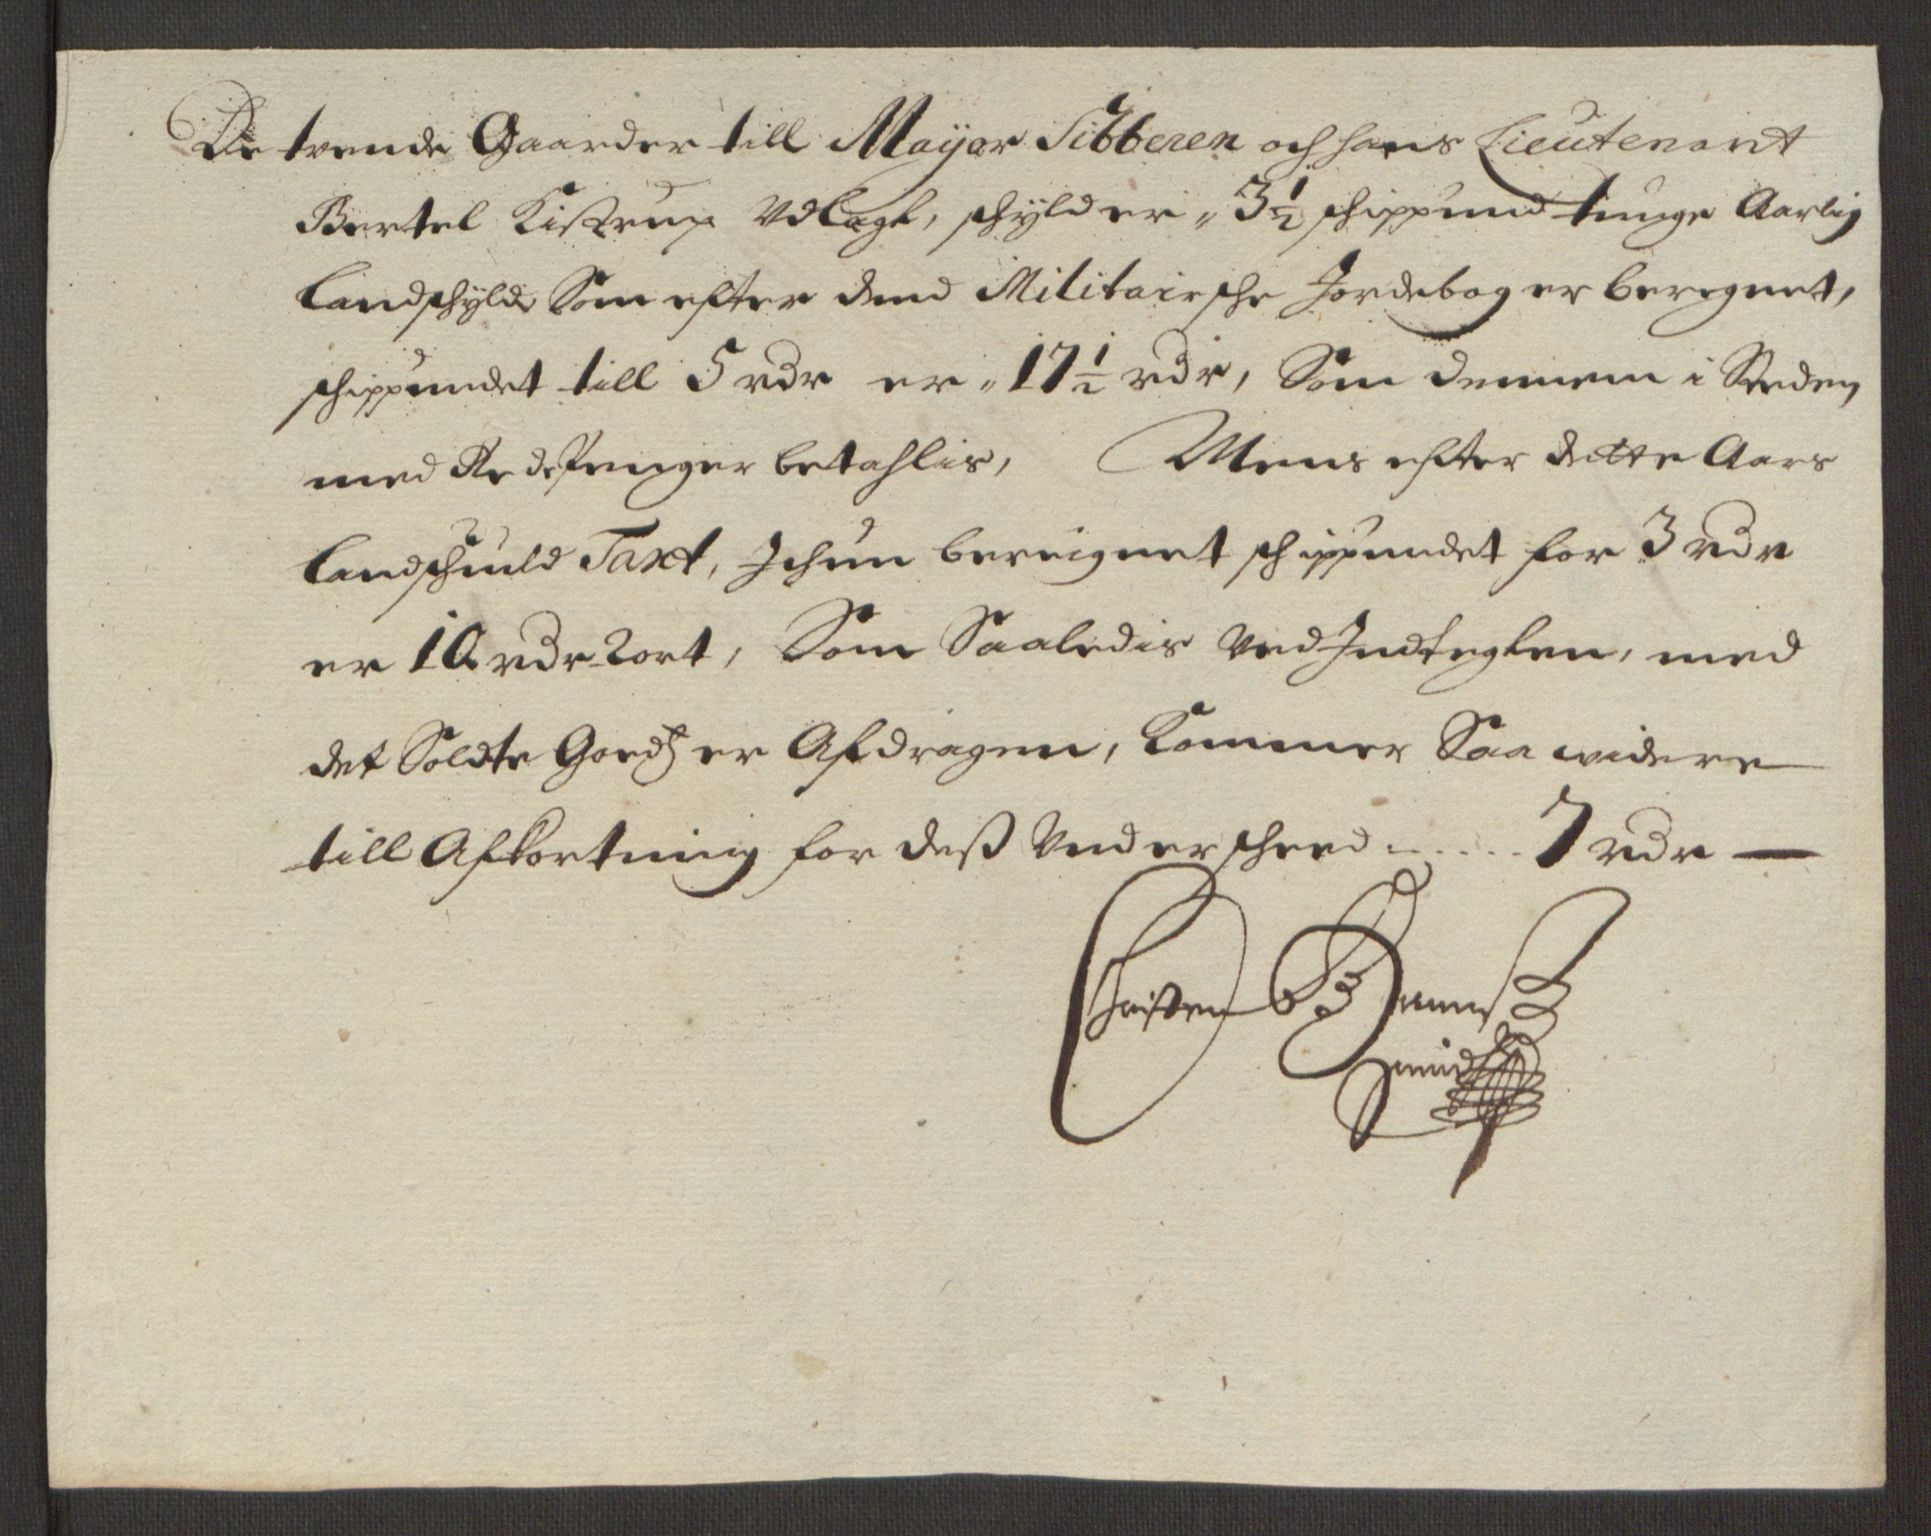 De trende Gaarder till Mayor Sibberen och hans Lieutenant
Bertel Kistrup Udlagt, schylder „ 3 1/2 schippund tunge Aarlig
Landschyld Som efter dend Militairsche Jordebog er beregnet,
schippundet till 5 rdr er „ 17 1/2 rdr, Som dennem i Steden
med Rede Penger betahlis, Mens efter dette Aars
Landschuld Taxt, Ichun bereignet schippundet for 3 rdr
er 10 rdr 2 ort, Som Saaledis Ved Indtegten, med
det Soldte Goeds er Afdragen, Kommer Saa widere
till Afkortning for deß Underscheed ...... 7 rdr —
Christen